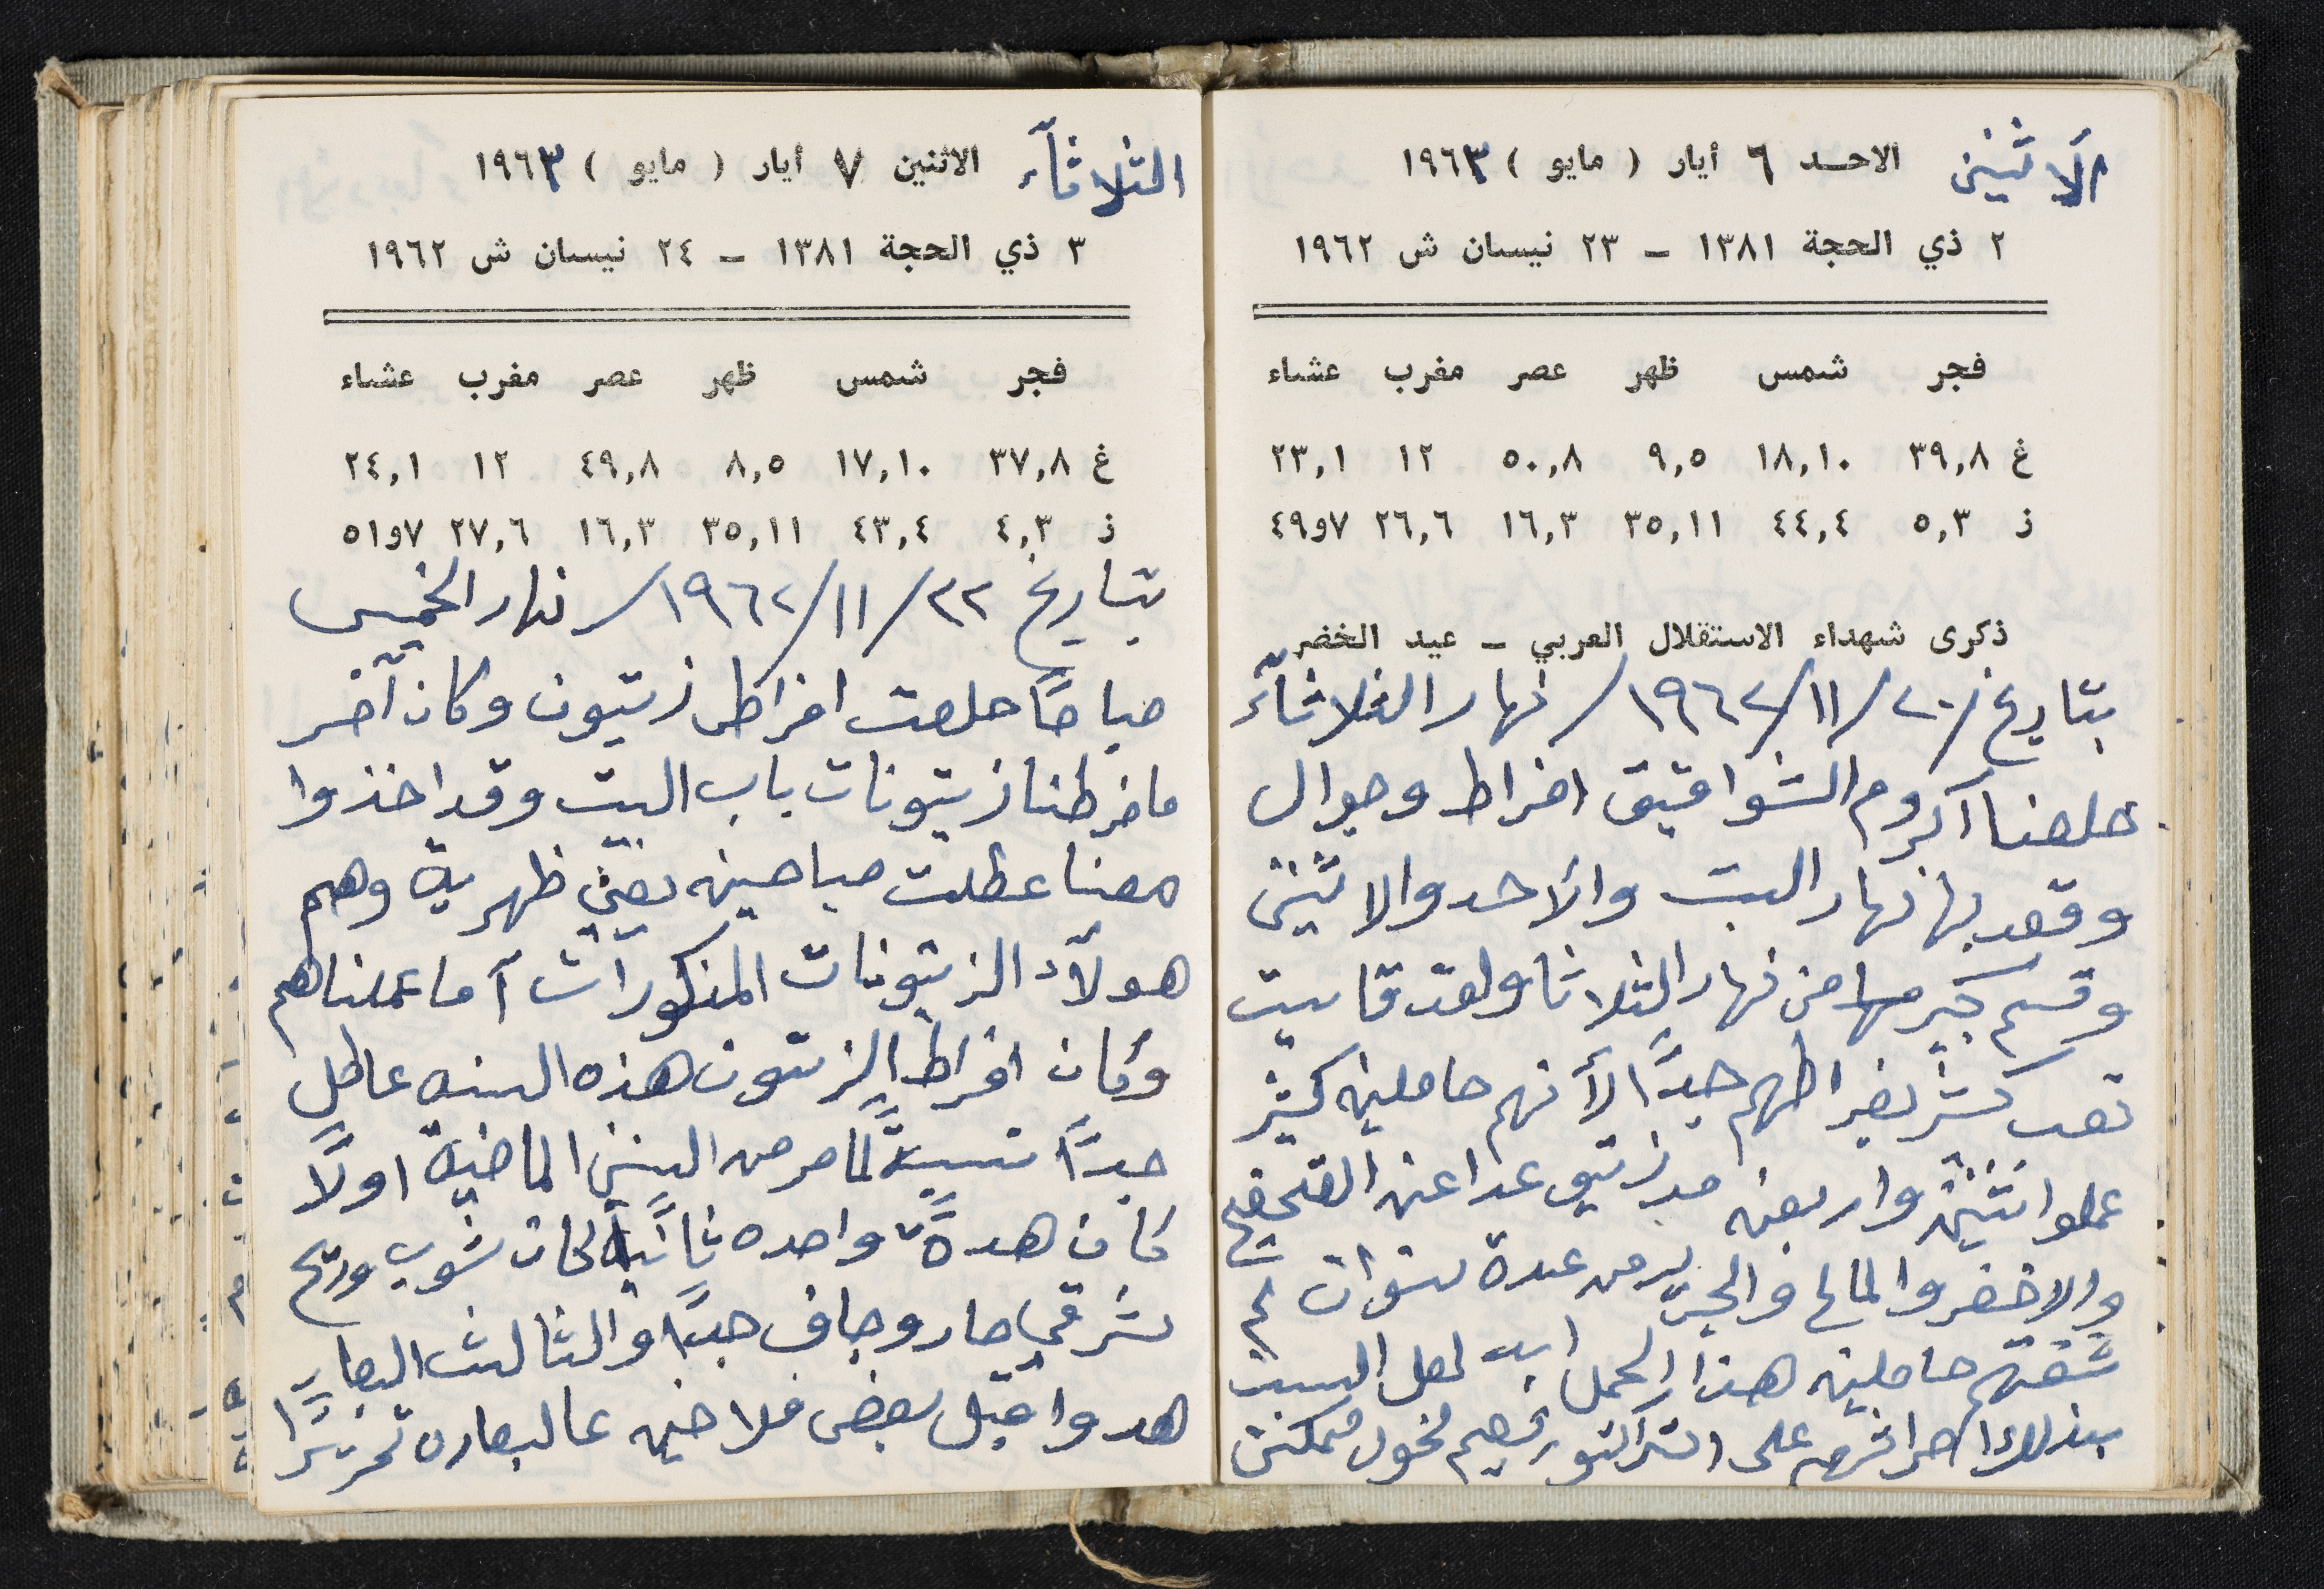 الاثنين الاحد ٦ أيار ( مايو ) ١٩٦٣
٢ ذي الحجة ١٣٨١ – ٢٣ نيسان ش ١٩٦٢
فجر شمس ظهر عصر مغرب عشاء
غ ٣٩,٨ ١٨,١٠ ٩,٥ ٥٠,٨ ١٢ ٢٣,١
ز ٥,٣ ٤٤,٤ ٣٥,١١ ١٦,٣ ٢٦,٦ ٧و٤٩
ذكرى شهداء الاستقلال العربي – عيد الخضر
بتاريخ /٢٠/١١/١٩٦٢/ نهار الثلاثآء
خلصنا اكروم الشواقيق افراط وجوال
وقعد بها نهار السبت والأحد والاثنين
وقسم كبير منها من نهار الثلاثا ولقد قاسيت
تعب كثير بفراطهم جدًا لأنهم حاملين كثير
عملوا اثنين واربعين مد زيتون عدا عن
والاخضر والمالح والجرير من عدة سنوات لم
شفتهم حاملين هذا الحمل ابد لعل السبب
بذلك احراثهم على التراكتور فهم نحول ممكن
الثلاثآء الاثنين ٧ أيار ( مايو ) ١٩٦٣
٣ ذي الحجة ١٣٨١ – ٢٤ نيسان ش ١٩٦٢
فجر شمس ظهر عصر مغرب عشاء
غ ٣٧,٨ ١٧,١٠ ٨,٥ ٤٩,٨ ١٢ ٢٤,١
ز ٤,٣ ٤٣,٤ ٣٥,١١ ١٦,٣ ٢٧,٦ ٧و٥١
بتاريخ ٢٢/١١/١٩٦٢/ نهار الخميس
صباحًا خلصت افراط زيتون وكان آخر
ما فرطنا زيتونات باب البيت وقد اخذوا
معنا عطلت صباحين بقيّ ظهرية وهم
هولآء الزيتونات المذكورات آما عملناهم
وكان افراط الزيتون هذه السنه عاطل
جدًا نسبيةً لما مر من السنين الماضية اولًا
كان هدةً واحده ثانيًا كان شوب وريح
شرقي حار وجاف جدًا والثالث البعارًا
هدوا قبل بعض فلاحين عالبعاره